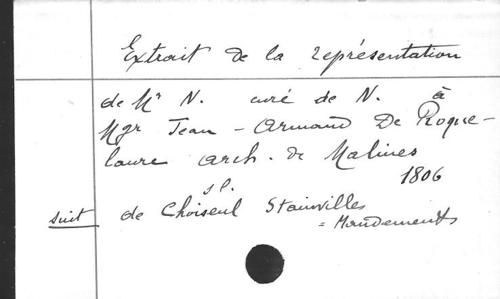 Extrait de la représentation
de Mr N. curé de N. à
Mgr Jean-Armand De Roque-
laure arch. de Malines
1806
s.l.
suit de Choiseul Stainvilles
= Mandements